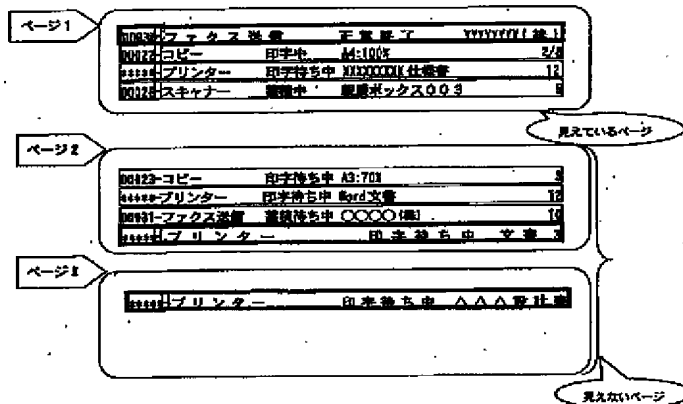 ページ1
ファクス送信 正常終了
00022-コピー 印字中 A4:100% 2/8
*****-プリンター 印字待ち中 XXXXXXXX仕様書 12
00028-スキャナー 蓄積中 親展ボックス003
見えているページ
ページ2
00023-コピー 印字待ち中 A3:70%
*****-プリンター 印字待ち中 Word文書 12
00031-ファクス送信 蓄積待ち中 〇〇〇〇(株) 10
*****-プリンター 印字待ち中 文書3
ページ
*****-プリンター 印字待ち中 △△△設計書
見えないページ